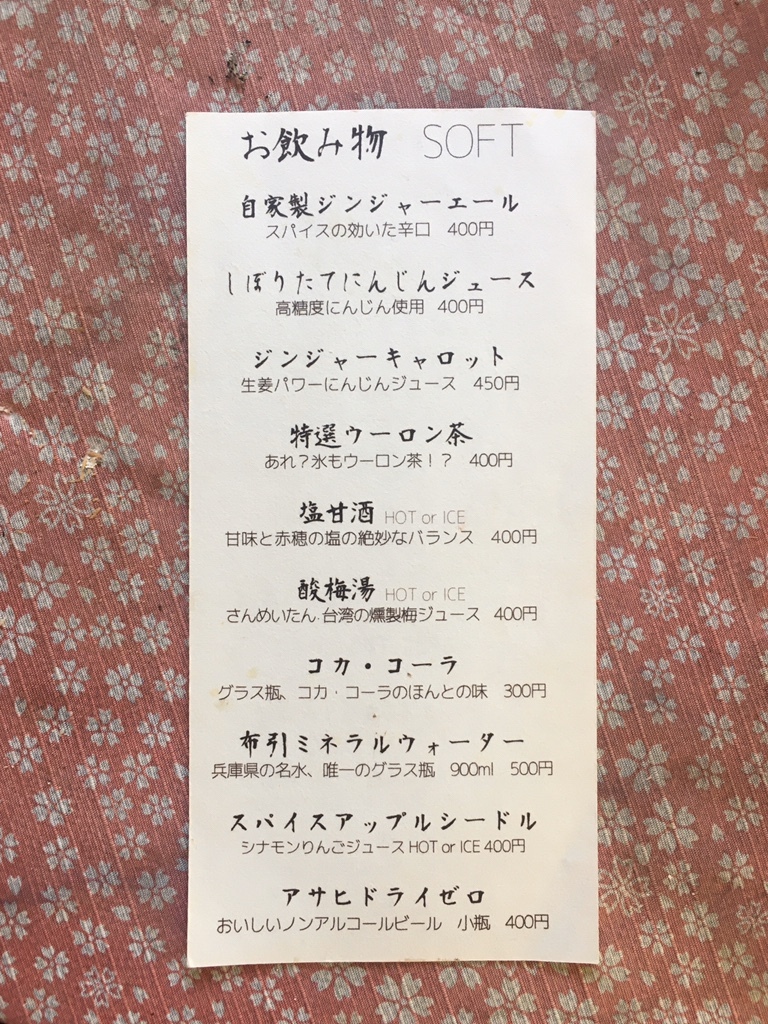 お飲み物 SOFT
自家製ジンジャーエール
スパイスの効いた辛口 400円
しぼりたてにんじんジュース
高糖度にんじん使用 400円
ジンジャーキャロット
生姜パワーにんじんジュース 450円
特選ウーロン茶
あれ？氷もウーロン茶！？ 400円
塩甘酒 HOT or ICE
甘味と赤穂の塩の絶妙なバランス 400円
酸梅湯 HOT or ICE
さんめいたん.台湾の燻製梅ジュース 400円
コカ・コーラ
グラス瓶、コカ・コーラのほんとの味 300円
布引ミネラルウォーター
兵庫県の名水、唯一のグラス瓶 900ml 500円
スパイスアップルシードル
シナモンりんごジュース HOT or ICE 400円
アサヒドライゼロ
おいしいノンアルコールビール 小瓶 400円